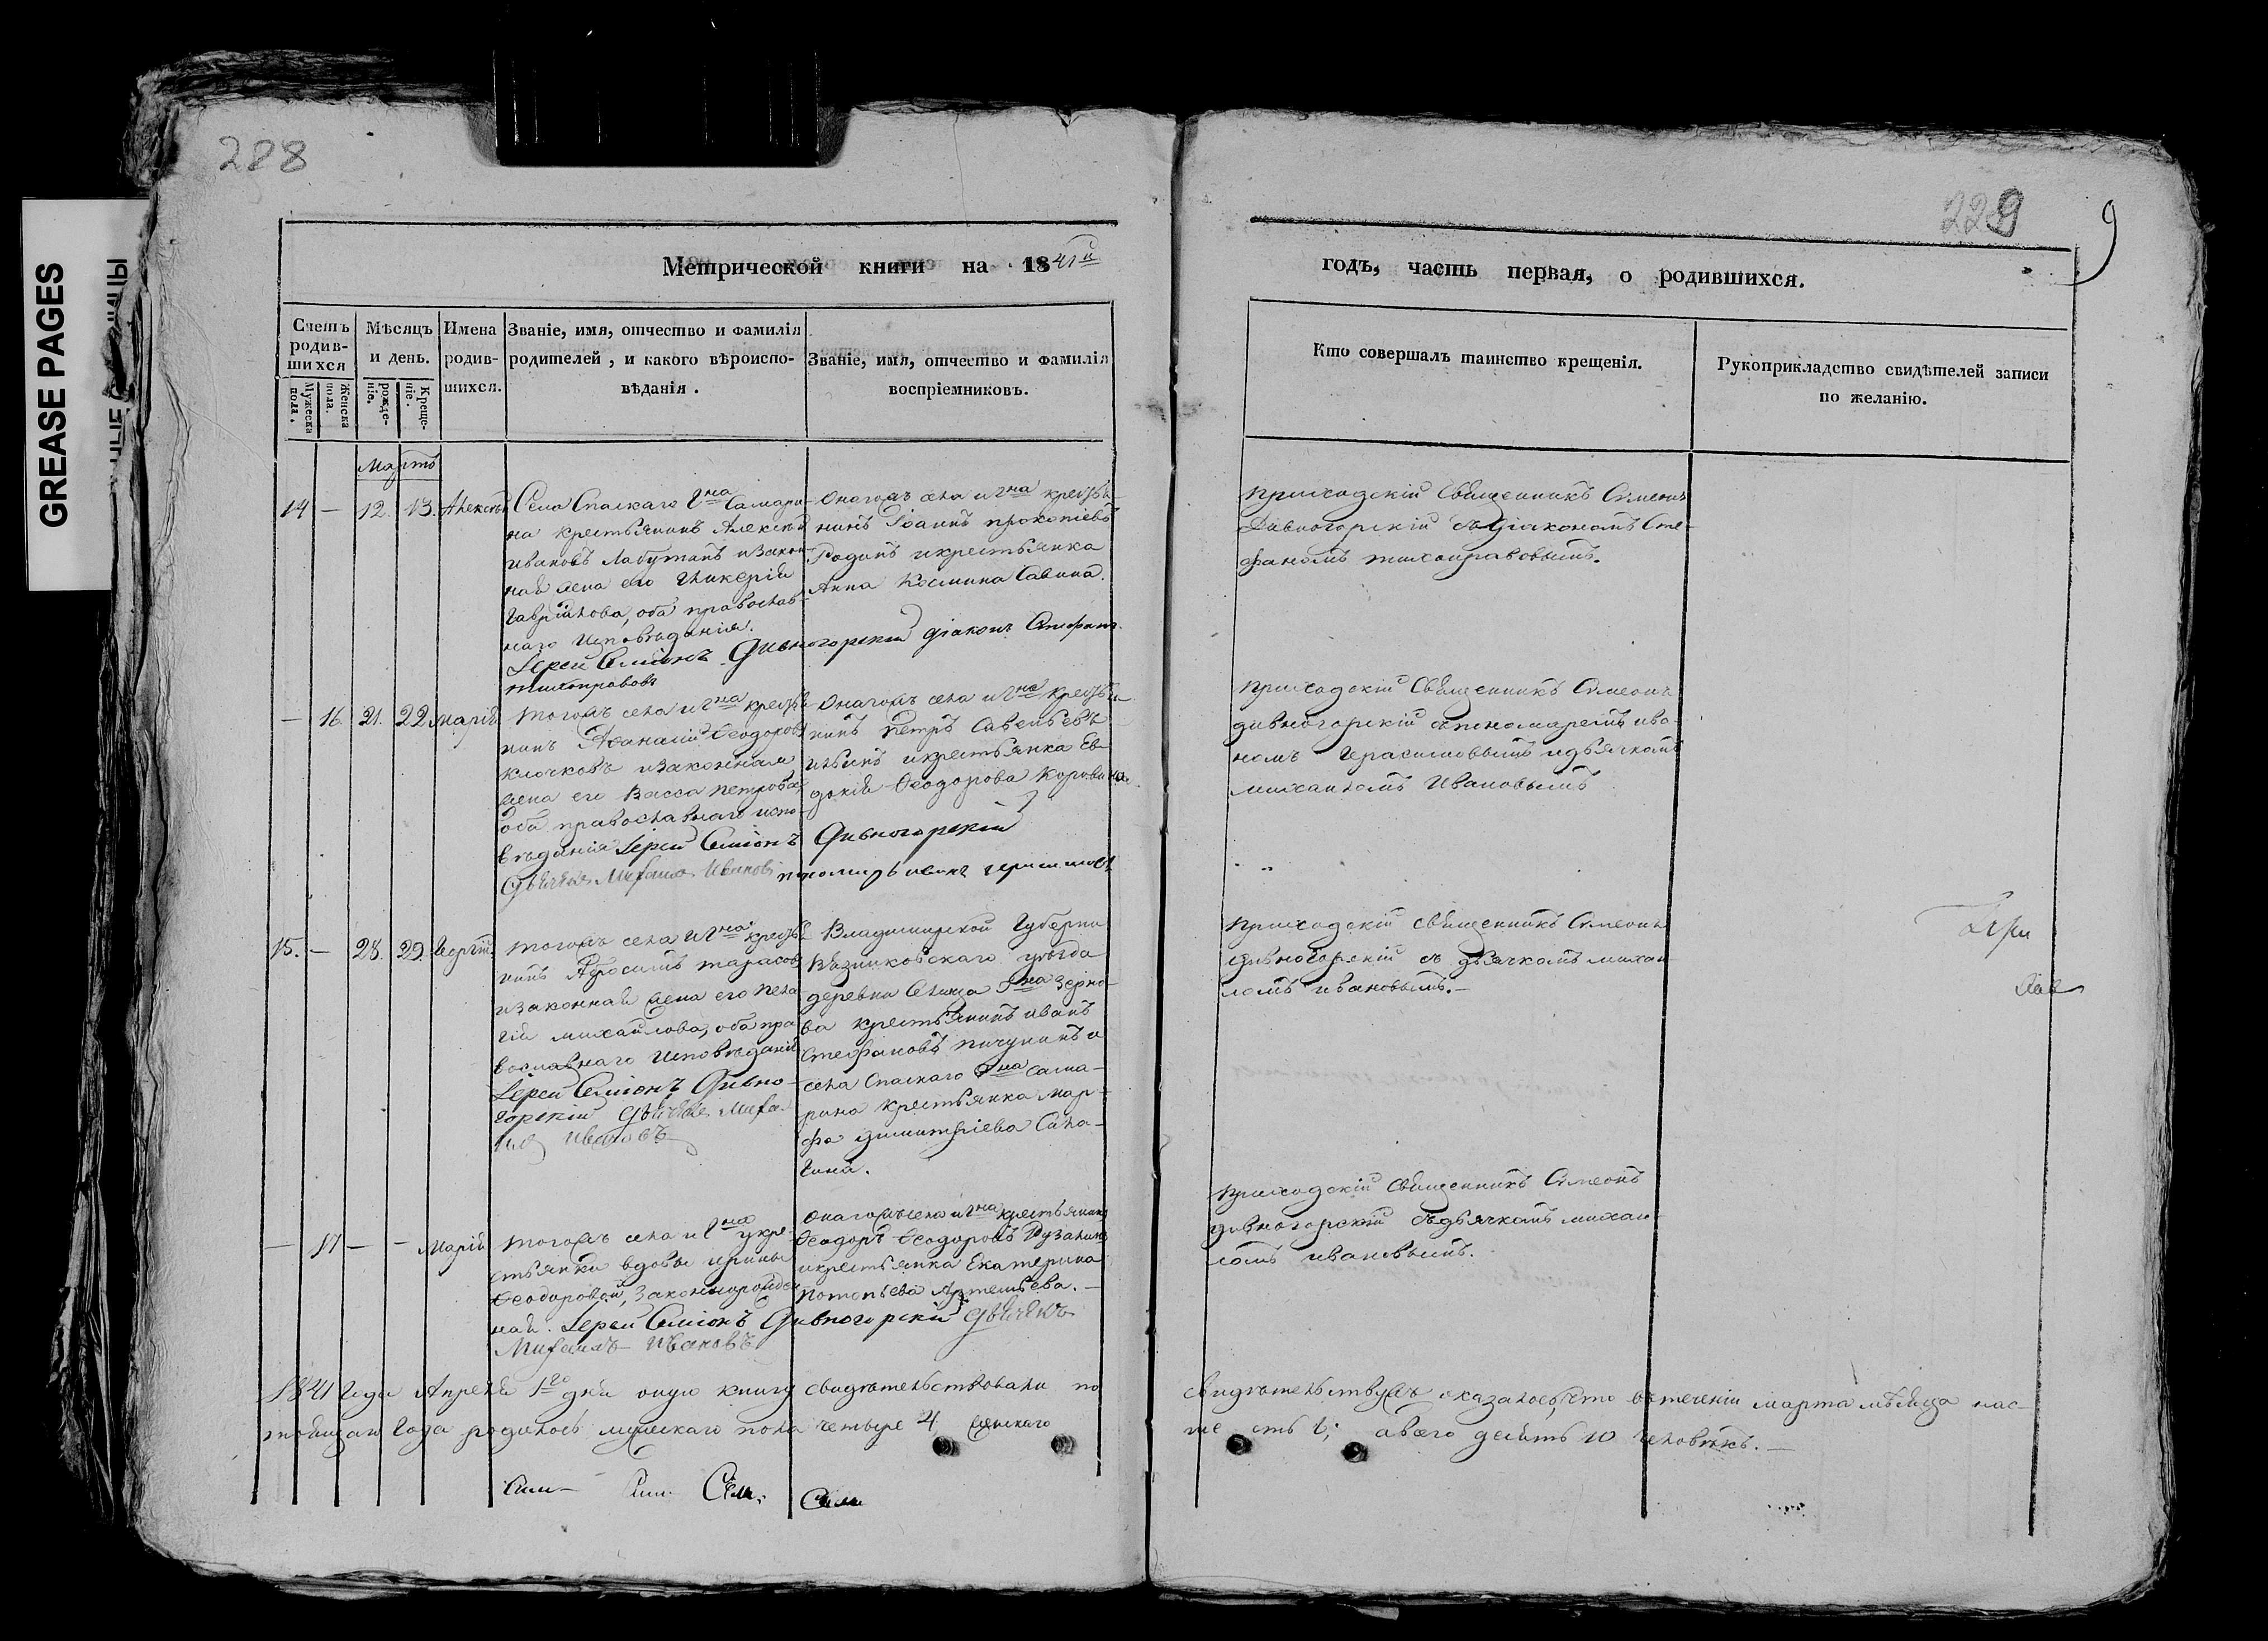 288
GREASE PAGES
229
9
Метрической книги на 1841й
годъ, часть первая, о родившихся.
Счетъ родив-шихся
Мужеска пола.
Женска пола.
Мѣсяцъ и день.
рожде-ніе.
Креще-ніе.
Имена родив-шихся.
Званіе, имя, отчество и фамилія
родителей, и какого вѣроиспо-
вѣданія.
Званіе, имя, отчество и фамилія
воспріемниковъ.
Кто совершалъ таинство крещенія.
Рукоприкладство свидѣтелей записи
по желанію.
Мартъ
14 — 12. 13. Алексѣй
Села Спаскаго Гна Самари-
на крестьянинъ Алексѣй
Ивановъ Лабутинъ и закон-
ная жена его Гликерія
Гаврилова, оба православ-
наго исповѣданія.
Іерей Симіонъ Дивногорскій діаконъ Стефанъ
Тихонравовъ
Онагожъ села и Гна крестья-
нинъ Іоаннъ Прокопіевъ
Родинъ и крестьянка
Анна Космина Савина.
Приходскій Священникъ Симеонъ
Дивногорскій съ Діакономъ Сте-
фаномъ Тихонравовымъ.
— 16. 21. 22. Марія
Тогожъ села и Гна крестья
нинъ Афанасій Ѳеодоровъ
Клочковъ и законная
жена его Васса Петрова
оба православнаго испо-
вѣданія Іерей Симіонъ Дивногорскій
Дьячекъ Михаилъ Ивановъ пономарь Иванъ Герасимовъ
Онагожъ села и Гна крестья-
нинъ Петръ Савельевъ
Ильинъ и крестьянка Ев-
докія Ѳеодорова Коровина
Приходскій Священникъ Симеонъ
Дивногорскій съ пономаремъ Ива-
номъ Герасимовымъ и дьячкомъ
Михаиломъ Ивановымъ
15. — 28. 29. Георгій
Тогожъ села и Гна крестья
нинъ Абросимъ Тарасовъ
и законная жена его Пела
гія Михайлова, оба пра
вославнаго исповѣданія
Іерей Симіонъ Дивно-
горскій Дьячекъ Миха
илъ Ивановъ
Владимирской Губерни
Вязниковскаго уѣзда
деревни Гна
крестьянинъ Иванъ
Стефановъ Пичугинъ и
села Спаскаго Гна Сама-
рина крестьянка Мар-
фа Димитріева Сала-
гина.
Приходскій Священникъ Симеонъ
Дивногорскій съ дьячкомъ Михаи
ломъ Ивановымъ. —
— 17 — — Марія
Тогожъ села и Гна у кре-
стьянки вдовы Ирины
Ѳеодоровой, законнорожден
ная. Іерей Симіонъ Дивногорскій Дьячекъ
Михаилъ Ивановъ
Онагожъ села и Гна крестьянинъ
Ѳеодоръ Ѳеодоровъ
и крестьянка Екатерина
Потапьева Артемьева. —
Приходскій Священникъ Симеонъ
Дивногорскій съ дьячкомъ Михаи
ломъ Ивановымъ.
1841 Года Апреля 1го дня оную книгу свидѣтельствовали по свидѣтельству оказалось, что въ теченіи марта мѣсяца нас-
тоящаго Года родилось мужескаго пола четыре 4 женскаго шесть 6; а всего десять 10 человѣкъ. —
Сим Сим Сим Сим